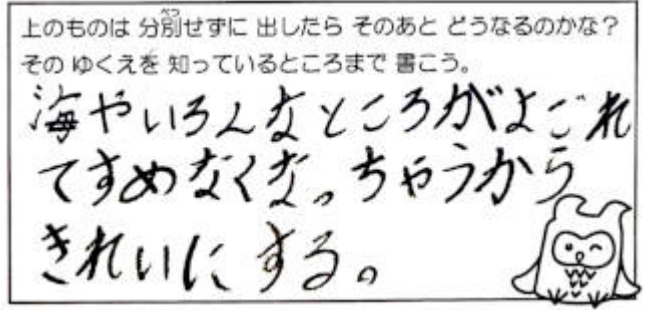 上のものは 分別せずに 出したら そのあと どうなるのかな？
その ゆくえを 知っているところまで 書こう。
海やいろんなところがよごれ
てすめなくなっちゃうから
きれいにする。